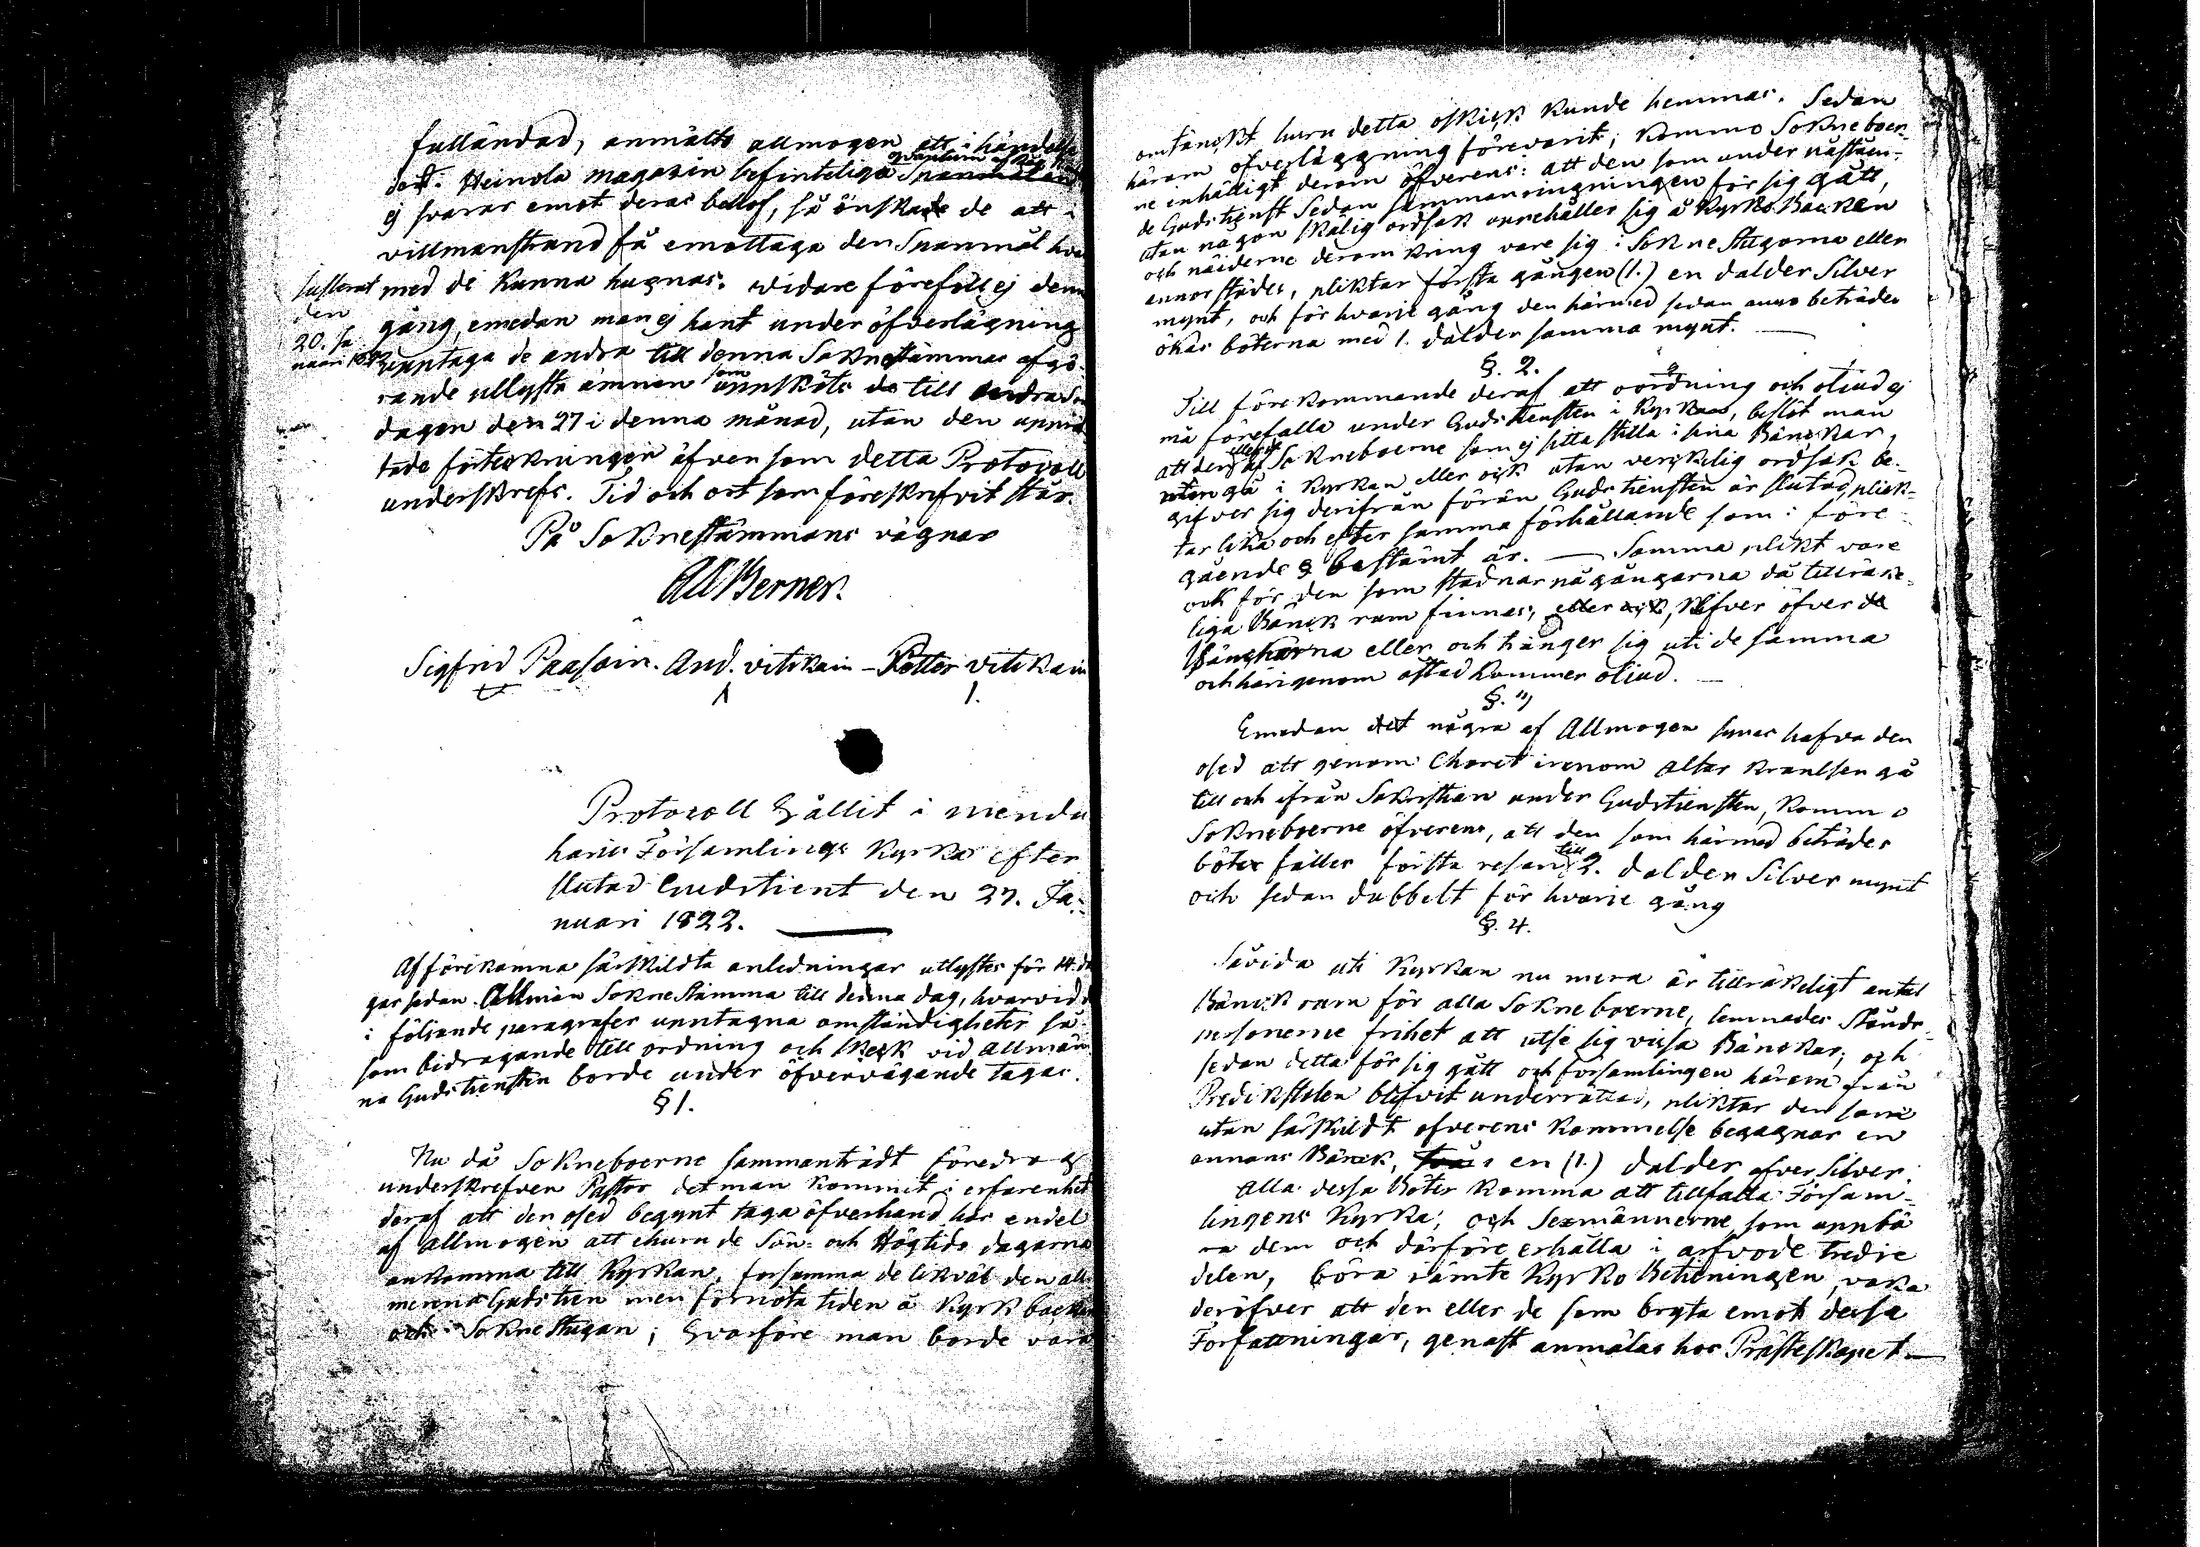 fulländad, anmälte allmogen att i händelse
det i Heinola magasin befinteliga quantum af
ej svarar emot deras behof, så önskade de att i
villmanstrand få emottaga den Spanmål hva
med de kunna hugnas. vidare föreföll ej denna
gång, emedan man ej hant under öfverlägning
upptaga de andra till denna Sokne stämmas afgö
rande utlyste ämnen som uppsköts till andra Sön
dagen den 27 i denna månad, utan den uppräd
tade förtekningen äfven som detta Protocoll
underskrefs. Tid och ort som föreskrefvit står.
Justerat
den
20. Ja
nuari 1822
På Soknestämmans vägnar
Sigfrid Paasoin. And. vitikain – Petter vitikain
Protocoll hållit i menda
haris Församlings kyrka efter
slutad Gudstienst den 27. Ja-
nuari 1822.
Af förekomna särskildta anledningar utlystes för 14. da
gar sedan Allmän Sokne Stämma till denna dag, hvarvid
i följande paragrafer upptagna omständigheter så
som bidragande till ordning och skick vid allmän
na Gudstiensten borde under öfvervägande tagas.
§ 1.
Nu då Sokneboerne sammanträdt föredrog
underskrefven Pastor det man kommit i erfarenhet
deraf att den osed begynt taga öfverhand hos endel
af Allmogen att ehuru de Sön- och Högtids dagarna
ankomma till Kyrkan, försumma de likväl den all-
menna Gudstien men förnöta tiden å Kyrk backen
och i Sokne stugan; hvarföre man borde vara
omtänckt huru detta oskick kunde hemmas. Sedan
härom öfverläggning förevarit, kommo Sokneboer-
ne enhälligt derom öfverens: att den som under påståen-
de Gudstienst sedan sammanringningen för sig gått,
utan någon skälig ordsak uppehåller sig å Kyrko Backen
och näiderne deromkring vare sig i Sokne stugorna eller
annorstädes, pliktar första gången (1.) en dalder Silver
mynt, och för hvarje gång den härmed sedan beträdes
ökas böterna med 1. daldер samma mynt.
§. 2.
Till förekommande deraf att oordning och oliud ej
må förefalla under Gudstiensten i Kyrkan, beslöt man
att den eller de af Sokneboerne som ej sitta stilla i sina Bänckar,
utan gå i kyrkan eller ock utan verckelig ordsak be-
gifver sig derifrån förän Gudstiensten är slutad, plick-
tar lika och efter samma förhållande som i före-
gående § bestämt är. — Samma plikt vare
ock för den som stadnar på gångarna då tilläräcke-
liga Bänck rum finnes, klifver öfver
Bänckarna eller och tränger sig uti de samma
och härigenom åstadkommer oliud. —
§. 3
Emedan det några af Allmogen synes hafva den
osed att genom Choret igenom altar krantsen gå
till och ifrån Sakristian under Gudstiensten, kommo
Sokneboerne öfverens, att den som härmed beträdes
böter fäller första resan till 2. daldеr Silver mynt
och sedan dubbelt för hvarje gång
§. 4.
Såvida uti Kyrkan nu mera är tillräckeligt antal
Bänck rum för alla Sokneboerne, lemnades Stånds-
personerne frihet att utse sig vissa Bänckar; och
sedan detta för sig gått och församlingen härom från
Predikstolen blifvit underrättad, pliktar den som
utan särskildt öfverens kommelse begagnar en
annans Bänck, en (1.) daldеr Silver.
Alla dessa Böter komma att tillfalla Försam-
lingens Kyrka; och Sexmännerne som uppbä
ra dem och därföre erhålla i arfvode tredje
delen, böra jämte Kyrko Betieningen, vaka
deröfver att den eller de som bryta emot dessa
Författningar, genast anmälas hos Prästeskapet. —